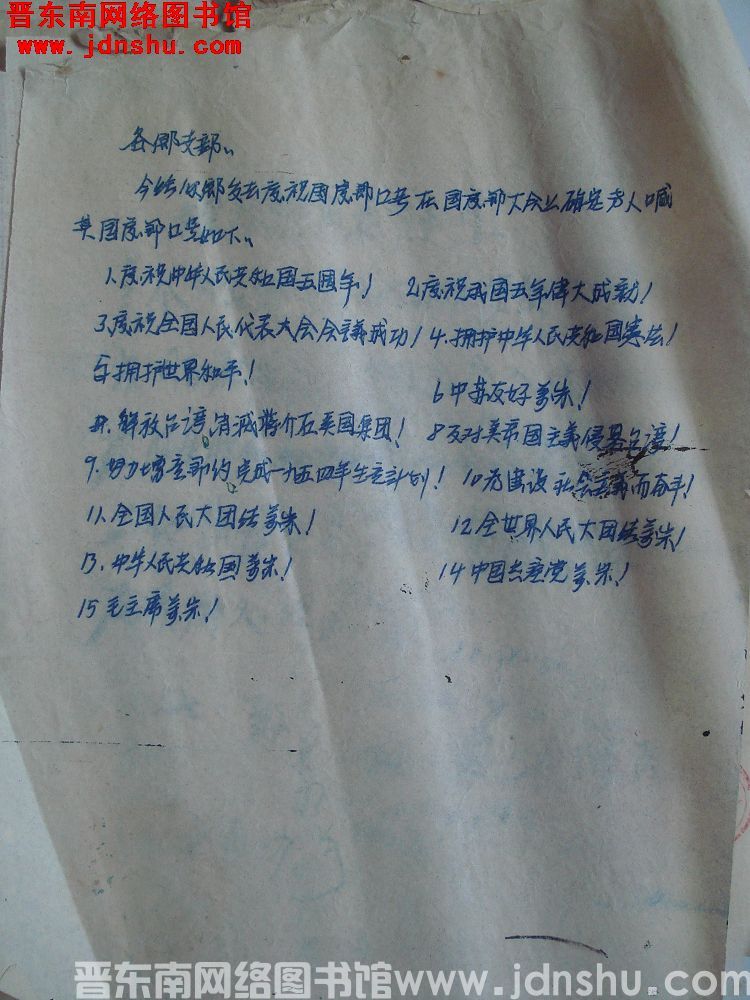 晋东南网络图书馆
www.jdnshu.com
各部支部、
今给你部发去庆祝国庆节口号在国庆节大会上确定专人喊
其国庆节口号如下、
1.庆祝中华人民共和国五国年! 2庆祝我国五年伟大成就!
3.庆祝全国人民代表大会会議成功! 4.拥护中华人民共和国宪法!
5拥护世界和平! 6中苏友好万岁!
7.解放台湾消滅蒋介石卖国集团! 8反对美帝国主義侵略台湾!
9.努力增产节约完成一九五四年生产计划! 10为建设社会主義而奋斗!
11.全国人民大团结万岁! 12全世界人民大团结万岁!
13.中华人民共和国万岁! 14中国共产党万岁!
15毛主席万岁!
晋东南网络图书馆www.jdnshu.com